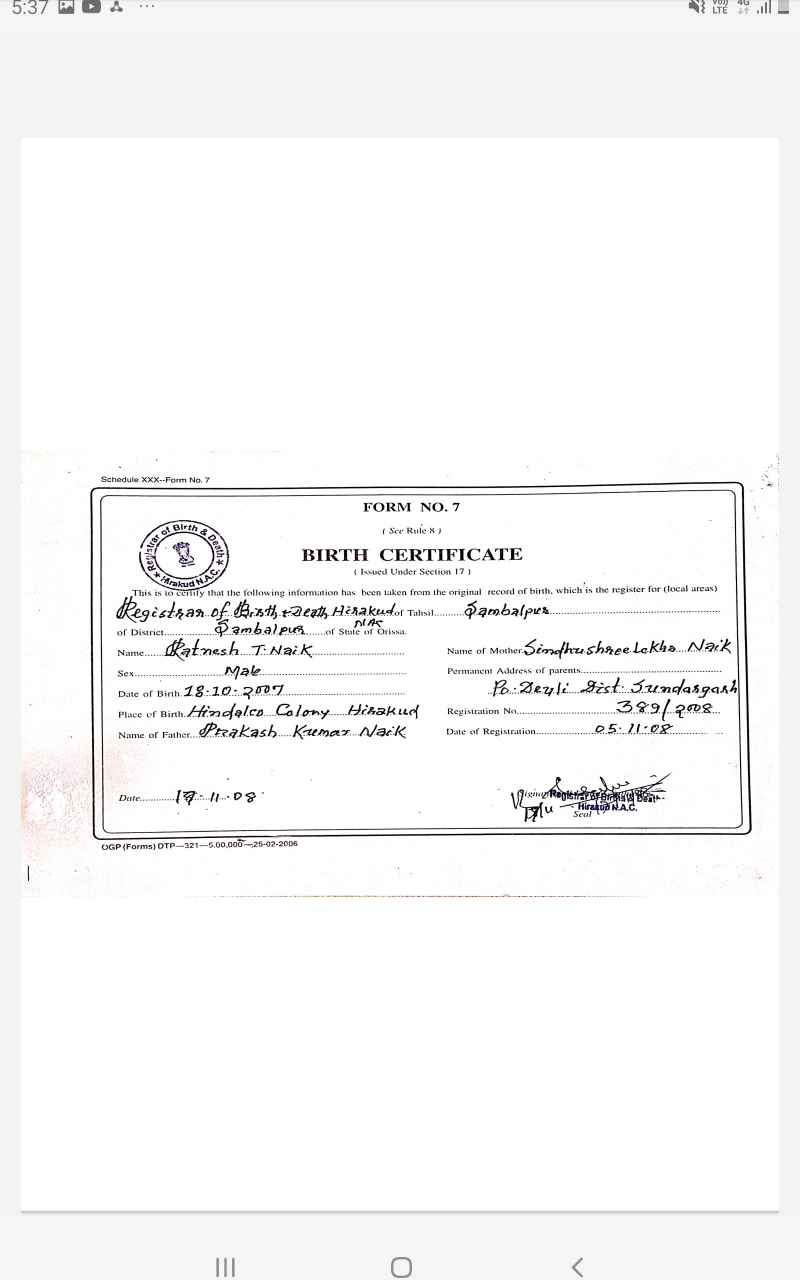 5:37
Vo))
LTE
4G
Schedule XXX--Form No. 7
FORM NO. 7
( See Rule 8 )
Registrar of Birth & Death
Hirakud N.A.C.
BIRTH CERTIFICATE
( Issued Under Section 17 )
This is to certify that the following information has been taken from the original record of birth, which is the register for (local areas)
Registrar of Birth & Death Hirakud NAC of Tahsil Sambalpur
of District Sambalpur of State of Orissa.
Name Ratnesh T. Naik
Name of Mother Sindhushree Lekha Naik
Sex Male
Permanent Address of parents
Date of Birth 18-10-2007
Po. Deuli Dist. Sundargarh
Place of Birth Hindalco Colony Hirakud
Registration No. 389/2008
Name of Father Prakash Kumar Naik
Date of Registration 05-11-08
Date -11-08
Registrar of Births & Death
Hirakud N.A.C.
Seal
OGP (Forms) DTP—321—5,00,000—25-02-2006